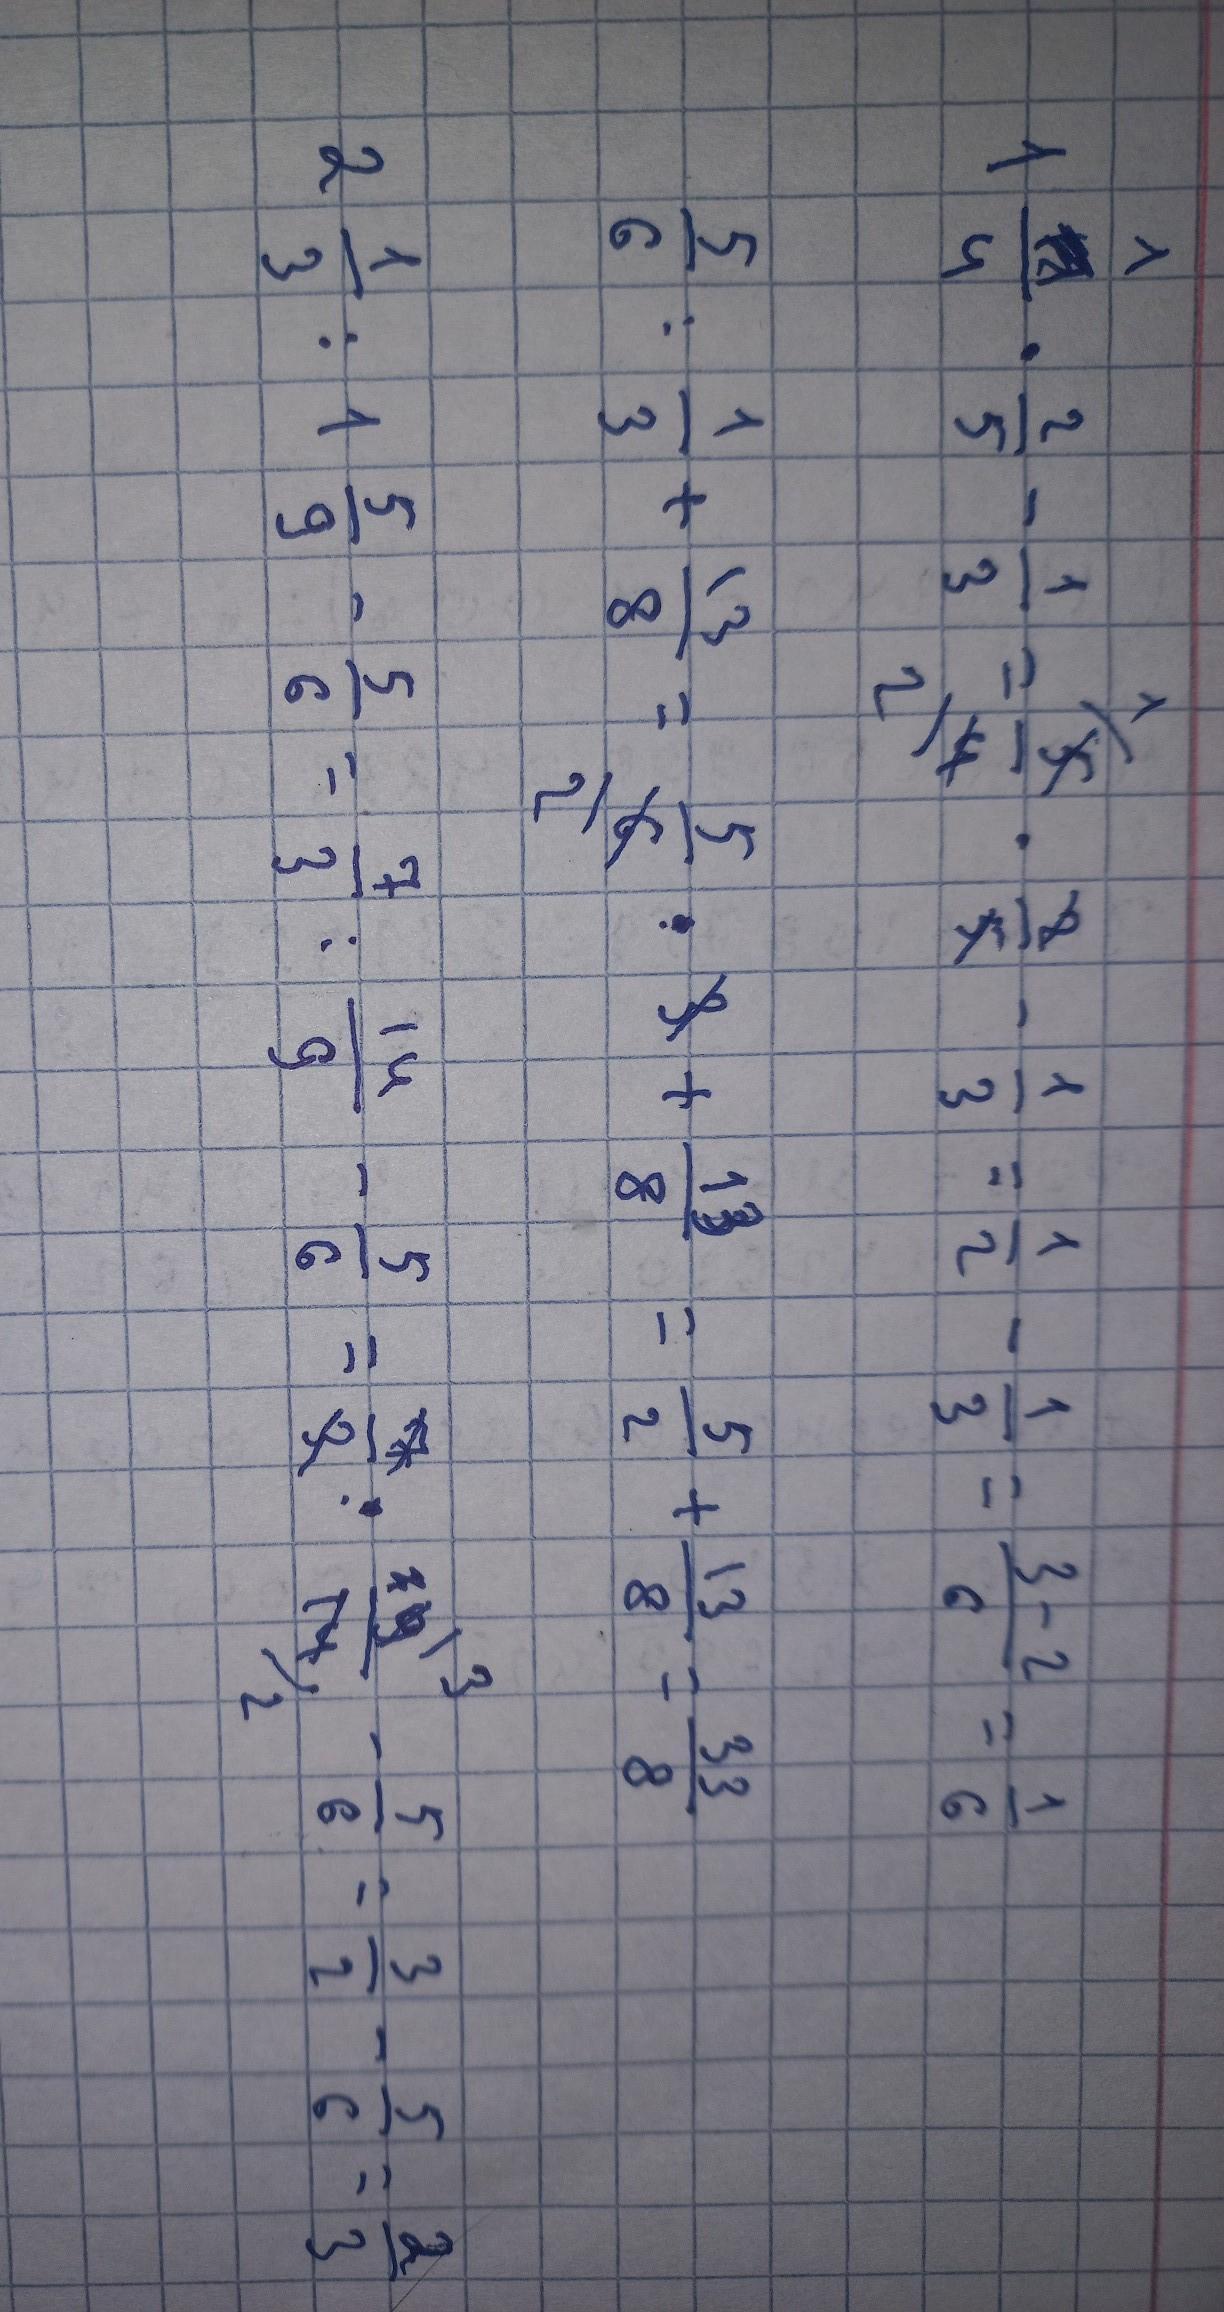 1 1/4 · 2/5 - 1/3 = 5/4 · 2/5 - 1/3 = 1/2 - 1/3 = 3-2/6 = 1/6
5/6 : 1/3 + 13/8 = 5/6 · 3 + 13/8 = 5/2 + 13/8 = 33/8
2 1/3 : 1 5/9 - 5/6 = 7/3 : 14/9 - 5/6 = 7/3 · 9/14 - 5/6 = 3/2 - 5/6 = 2/3